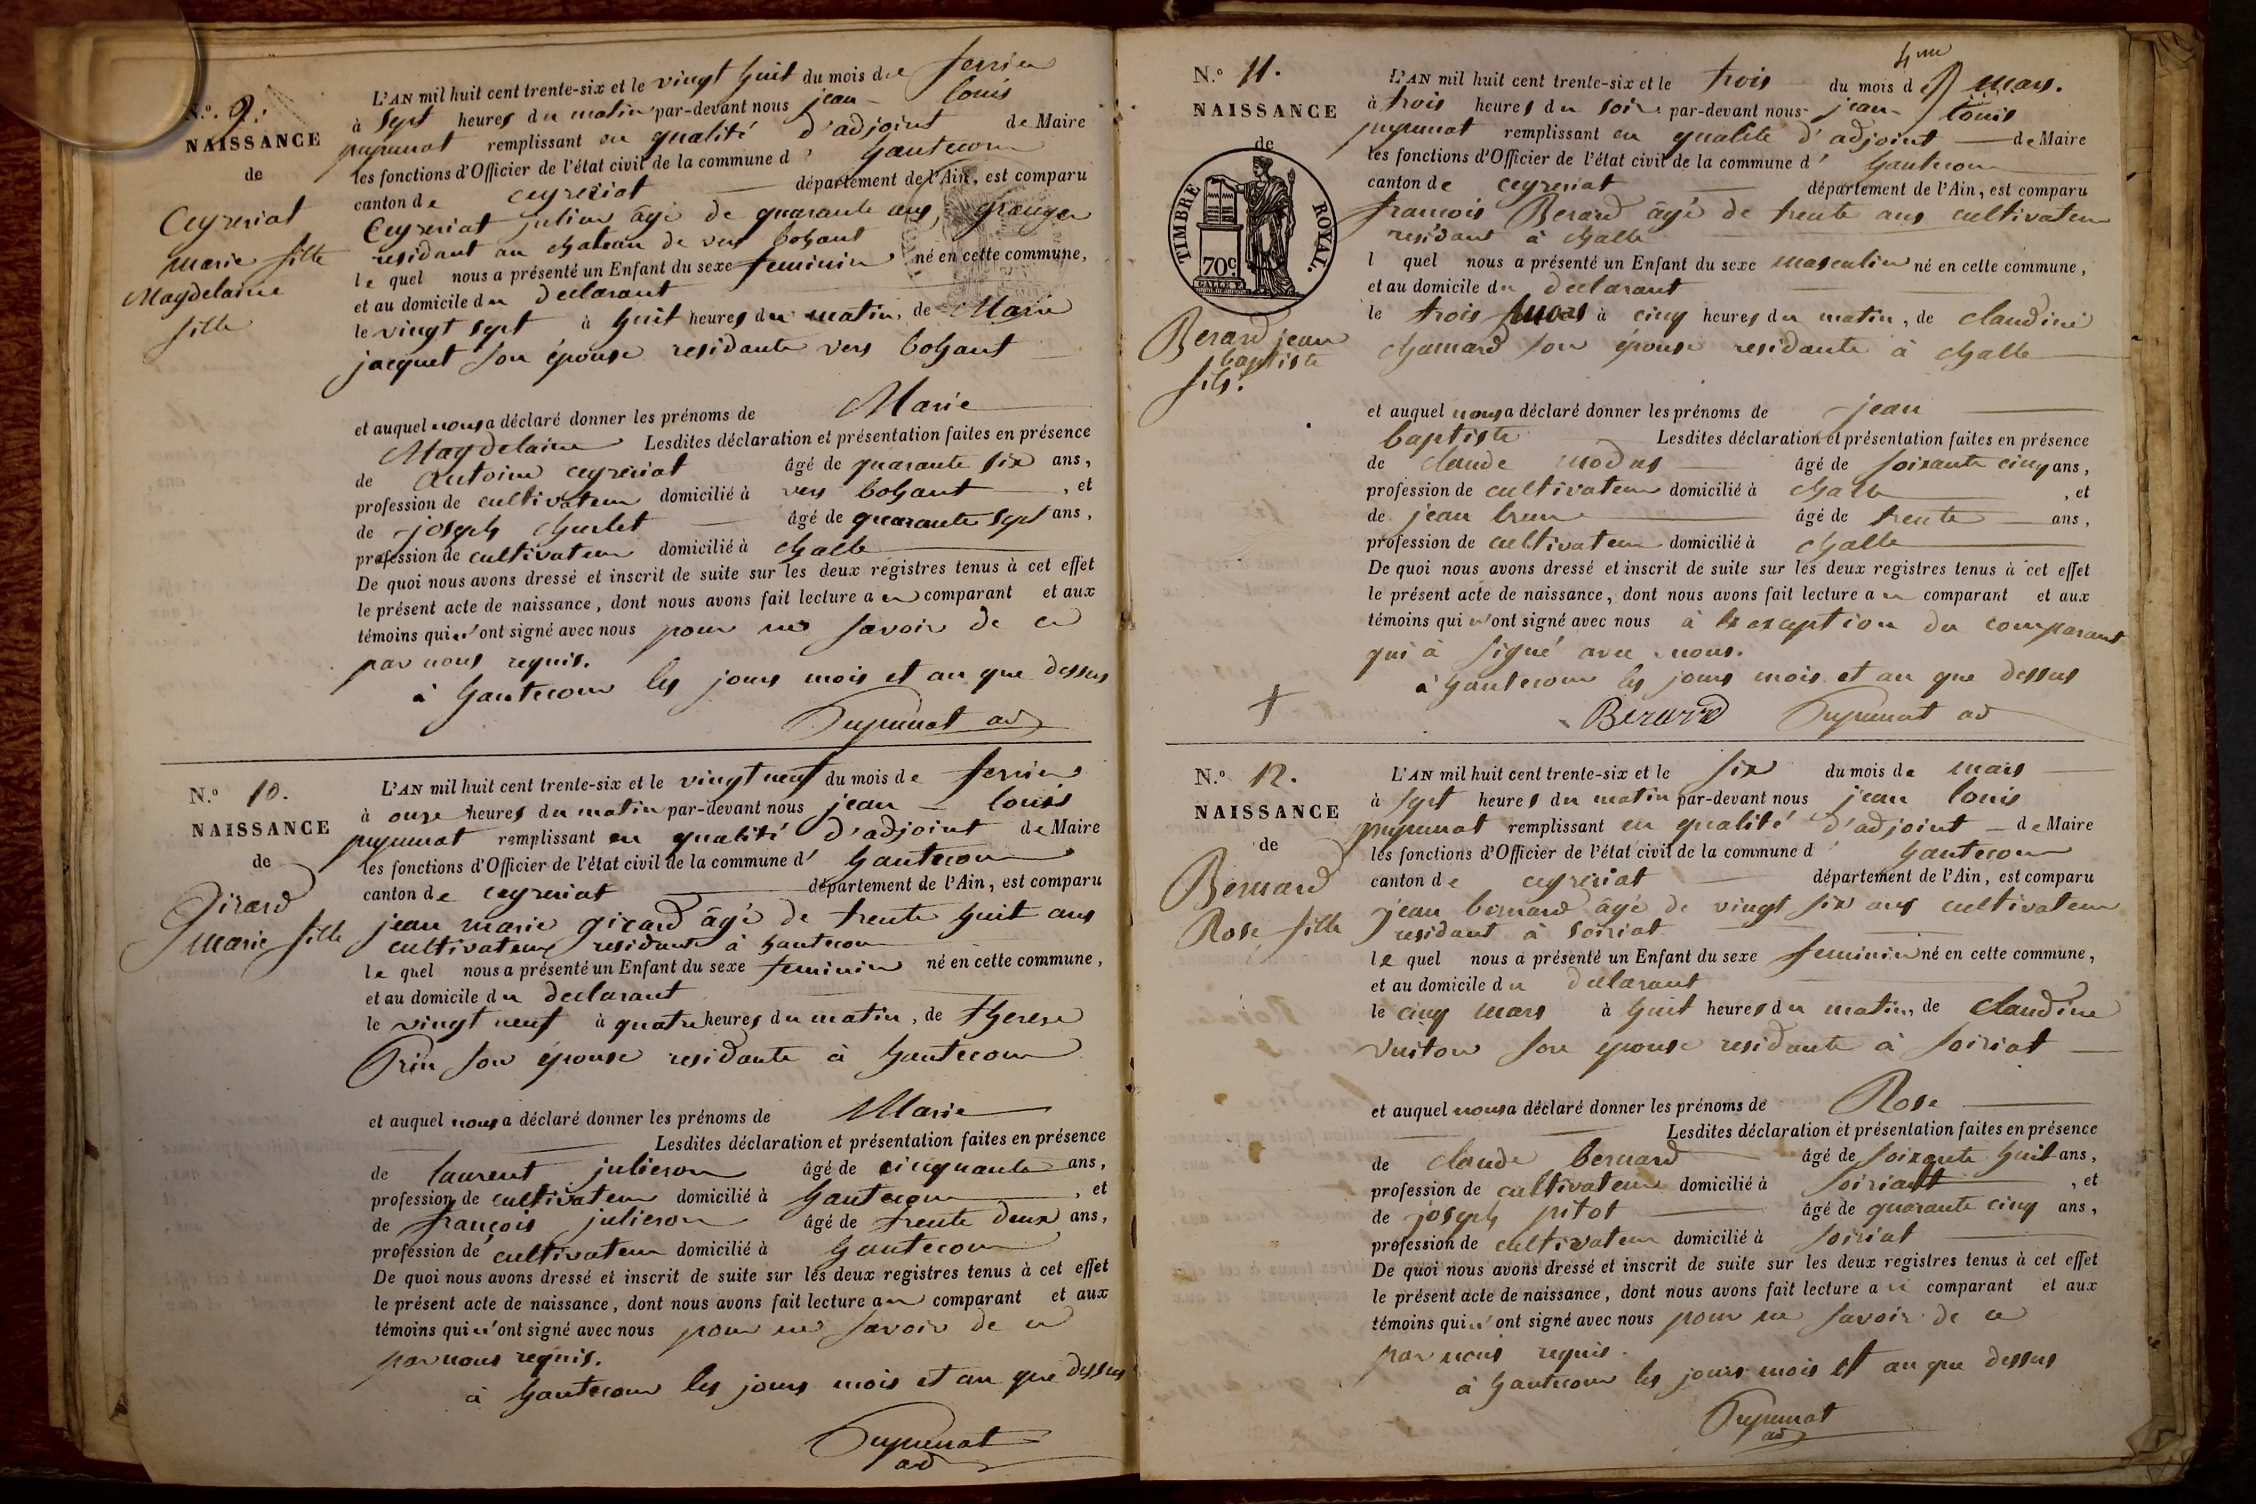 N.º 9.
NAISSANCE
de
Ceyzeriat
Marie fille
Magdelaine
fille
L'AN mil huit cent trente-six et le vingt huit du mois de fevrier
à sept heures du matin par-devant nous jean louis
puyunat remplissant en qualité d'adjoint de Maire
les fonctions d'Officier de l'état civil de la commune d' hautecour
canton de ceyzeriat département de l'Ain, est comparu
Ceyzeriat julien âgé de quarante ans, granger
residant au chateau de vers bohant
le quel nous a présenté un Enfant du sexe feminin né en cette commune,
et au domicile du declarant
le vingt sept à huit heures du matin, de Marie
jacquet son épouse residante vers bohant
et auquel nous a déclaré donner les prénoms de Marie
Magdelaine Lesdites déclaration et présentation faites en présence
de antoine ceyzeriat âgé de quarante six ans,
profession de cultivateur domicilié à vers bohant, et
de joseph âgé de quarante sept ans,
profession de cultivateur domicilié à challe
De quoi nous avons dressé et inscrit de suite sur les deux registres tenus à cet effet
le présent acte de naissance, dont nous avons fait lecture au comparant et aux
témoins qui n'ont signé avec nous pour ne savoir de ce
par nous requis.
à hautecour les jours mois et an que dessus
Puyunat ad
N.º 10.
NAISSANCE
de
Girard
Marie fille
L'AN mil huit cent trente-six et le vingt neuf du mois de fevrier
à onze heures du matin par-devant nous jean louis
puyunat remplissant en qualité d'adjoint de Maire
les fonctions d'Officier de l'état civil de la commune d' hautecour
canton de ceyzeriat département de l'Ain, est comparu
jean marie girard âgé de trente huit ans
cultivateur residant à hautecour
le quel nous a présenté un Enfant du sexe feminin né en cette commune,
et au domicile du declarant
le vingt neuf à quatre heures du matin, de therese
Prin son épouse residante à hautecour
et auquel nous a déclaré donner les prénoms de Marie
Lesdites déclaration et présentation faites en présence
de laurent julieron âgé de cinquante ans,
profession de cultivateur domicilié à hautecour, et
de françois julieron âgé de trente deux ans,
profession de cultivateur domicilié à hautecour
De quoi nous avons dressé et inscrit de suite sur les deux registres tenus à cet effet
le présent acte de naissance, dont nous avons fait lecture au comparant et aux
témoins qui n'ont signé avec nous pour ne savoir de ce
par nous requis.
à hautecour les jours mois et an que dessus
Puyunat
ad
4me
N.º 11.
NAISSANCE
de
TIMBRE ROYAL.
70c
Berard jean
baptiste
fils.
L'AN mil huit cent trente-six et le trois du mois d mars.
à trois heures du soir par-devant nous jean louis
puyunat remplissant en qualité d'adjoint de Maire
les fonctions d'Officier de l'état civil de la commune d' hautecour
canton de ceyzeriat département de l'Ain, est comparu
francois Berard âgé de trente ans cultivateur
residant à challe
l quel nous a présenté un Enfant du sexe masculin né en cette commune,
et au domicile du declarant
le trois mars à cinq heures du matin, de claudine
chamard son épouse residante à challe
et auquel nous a déclaré donner les prénoms de jean
baptiste Lesdites déclaration et présentation faites en présence
de claude modas âgé de soixante cinq ans,
profession de cultivateur domicilié à challe, et
de jean brun âgé de trente ans,
profession de cultivateur domicilié à challe
De quoi nous avons dressé et inscrit de suite sur les deux registres tenus à cet effet
le présent acte de naissance, dont nous avons fait lecture au comparant et aux
témoins qui n'ont signé avec nous à l'exception du comparant
qui à signé avec nous.
à hautecour les jours mois et an que dessus
Berard Puyunat ad
N.º 12.
NAISSANCE
de
Bernard
Rose fille
L'AN mil huit cent trente-six et le six du mois de mars
à sept heures du matin par-devant nous jean louis
puyunat remplissant en qualité d'adjoint de Maire
les fonctions d'Officier de l'état civil de la commune d' hautecour
canton de ceyzeriat département de l'Ain, est comparu
jean bernard âgé de vingt six ans cultivateur
residant à soiriat
le quel nous a présenté un Enfant du sexe feminin né en cette commune,
et au domicile du declarant
le cinq mars à huit heures du matin, de claudine
vuiton son epouse residante à soiriat
et auquel nous a déclaré donner les prénoms de Rose
Lesdites déclaration et présentation faites en présence
de claude bernard âgé de soixante huit ans,
profession de cultivateur domicilié à soiriat, et
de joseph pitot âgé de quarante cinq ans,
profession de cultivateur domicilié à soiriat
De quoi nous avons dressé et inscrit de suite sur les deux registres tenus à cet effet
le présent acte de naissance, dont nous avons fait lecture au comparant et aux
témoins qui n'ont signé avec nous pour ne savoir de ce
par nous requis.
à hautecour les jours mois et an que dessus
Puyunat
ad